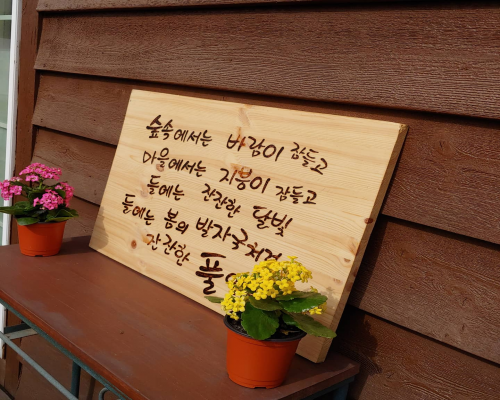 숲속에서는 바람이 잠들고
마을에서는 지붕이 잠들고
들에는 잔잔한 달빛
들에는 봄의 발자국처럼
잔잔한